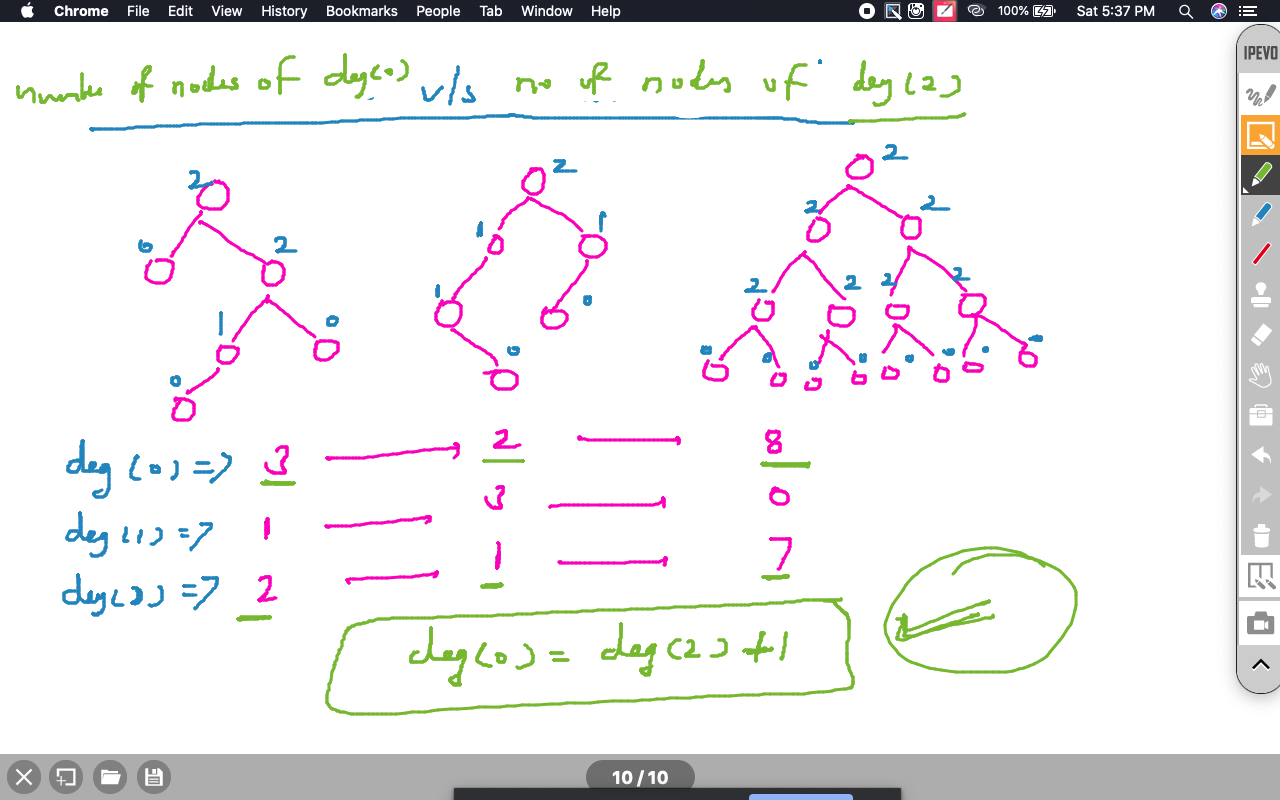 Chrome File Edit View History Bookmarks People Tab Window Help 100% Sat 5:37 PM
IPEVO
number of nodes of deg(0) v/s no of nodes of deg(2)
2 2 2
0 2 1 1 2 2
1 0 1 0 2 2 2 2
0 0 0 0 0 0 0 0 0 0
deg(0) => 3 2 8
deg(1) => 1 3 0
deg(2) => 2 1 7
deg(0) = deg(2)+1
10/10